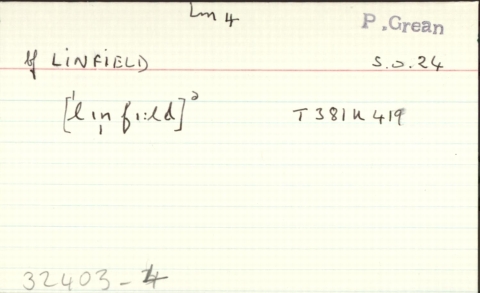 Lm 4
P. Grean
bf LINFIELD
S.O. 24
['lın fi:ld]²
T381H419
32403-4